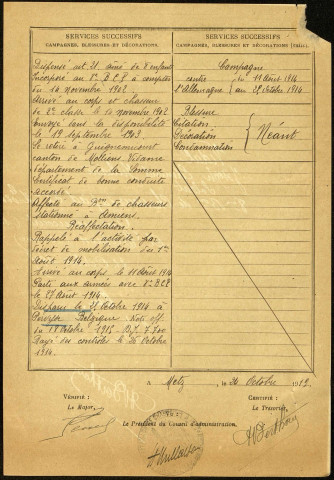 SERVICES SUCCESSIFS
CAMPAGNES, BLESSURES ET DÉCORATIONS.
Dispensé art 21. ainé de 7 enfants
Incorporé au 8e B.C.P. à compter
du 14 novembre 1902
Arrivé au corps et chasseur
de 2e classe le 14 novembre 1902
Envoyé dans la disponibilité
le 19 Septembre 1903.
Se retire à Guignemicourt
canton de Molliens Vidame
département de la Somme
Certificat de bonne conduite
accordé.
Affecté au Bon de chasseurs
stationné à Amiens.
Réaffectation.
Rappelé à l'activité par
décret de mobilisation du 1er
Août 1914.
Arrivé au corps le 11 Août 1914
Parti aux armées avec B.C.P.
le 27 Août 1914.
Disparu le 25 Octobre 1914 à
Belgique. Noti. off.
du Octobre 1915
Rayé des contrôles le 26 Octobre
1914.
SERVICES SUCCESSIFS
CAMPAGNES, BLESSURES ET DÉCORATIONS (SUITE).
Campagne
contre du 11 Août 1914
l'Allemagne au 25 Octobre 1914
Blessure
Citation
Décoration
Condamnation
Néant
A Metz, le Octobre 19
VÉRIFIÉ :
Le Major,
CERTIFIÉ :
Le Trésorier,
Le Président du Conseil d'administration,